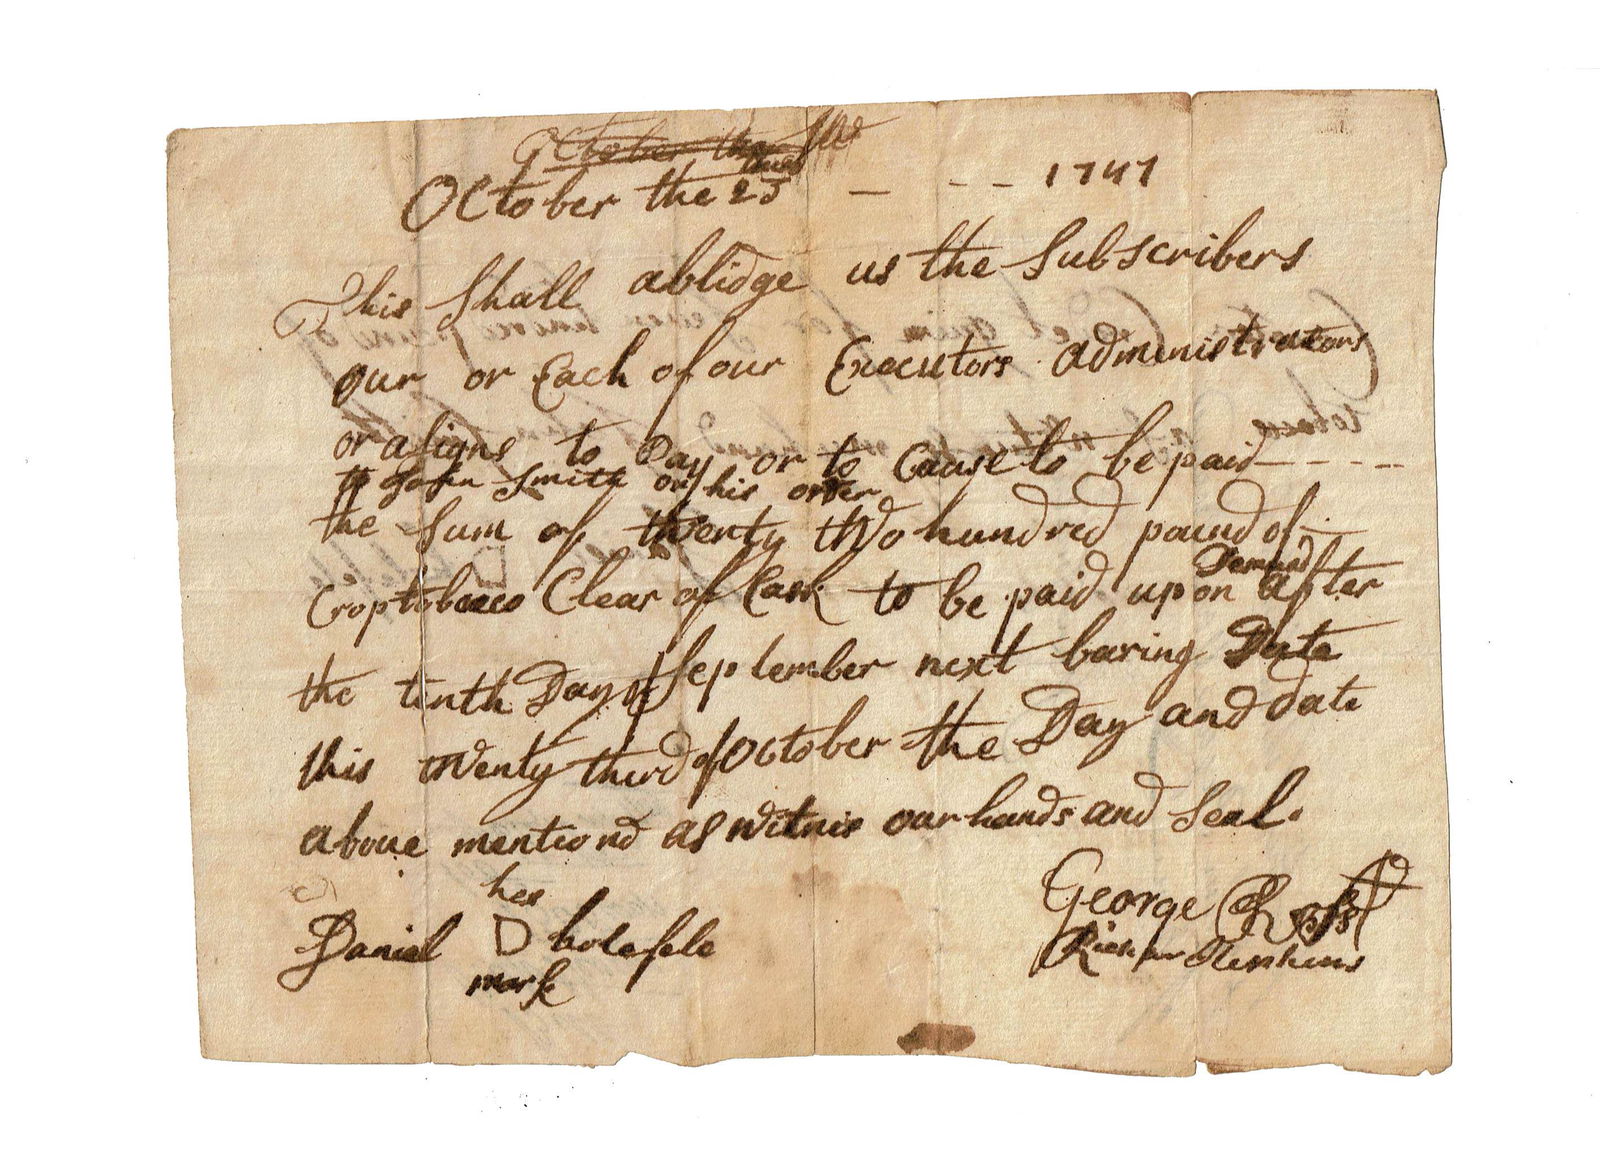 October the
October the 23 — - - 1747
This shall ablidge us the Subscribers
our or Each of our Executors administrators
or asigns to Pay or to Cause to be paid - - - -
to John Smith or his order
the Sum of twenty two hundred pound of
Demand
Croptobacco Clear of Cask to be paid upon after
the tenth Day of September next baring Date
this twenty third of October the Day and date
above mentiond as witnis our hands and Seal.
his
George Ross
Daniel D holefele
mark